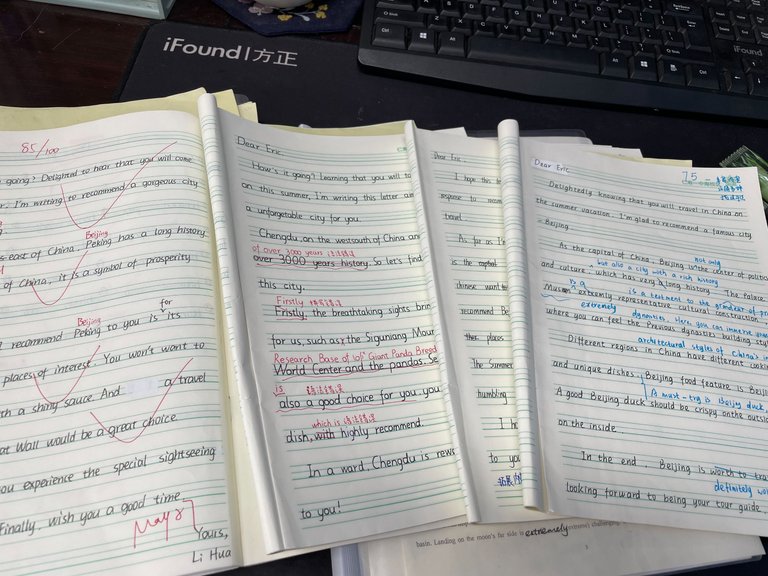 iFound 方正
iFound
85/100
going? Delighted to hear that you will come
r. I'm writing to recommend a gorgeous city
Beijing
s east of China, Peking has a long history
of China, it is a symbol of prosperity
Beijing
for
I recommend Peking to you is its
places of interest. You won't want to
th a shiny sauce. And a travel
at Wall would be a great choice
ou experience the special sightseeing
Finally, wish you a good time
Yours,
Li Hua
Dear Eric,
How's it going? Learning that you will to
on this summer, I'm writing this letter an
a unforgetable city for you.
Chengdu, on the westsouth of China an
of over 3000 years 语法错误
over 3000 years history. So let's find
this city.
Firstly 拼写错误
Fristly, the breathtaking sights brin
for us, such as the Siguniang Mour
Research Base of Giant Panda Breed
World Center and the pandas. Se
is 语法错误
also a good choice for you. you
which is 语法错误
dish, with highly recommend.
In a ward, Chengdu is rew
to you!
Dear Eric
I hope this le
response to recom
travel.
As far as I'm
is the capital
chinese want to
recommend Be
ther places
The Summer
humbling
I ho
to you
Dear Eric
75
Delightedly knowing that you will travel in China on
the summer vacation. I'm glad to recommend a famous city
- Beijing
not only
As the capital of China, Beijing is the center of political
but also a city with a rich history
and culture, which has very a long history. The palace
is a testment to the grandeur of
extremely representative cultural construction
extremely dynasties. Here, you can immerse
where you can feel the Previous dynasties building style
architectural styles of China's
Different regions in China have different cooking
and unique dishes. Beijing food feature is Beijing
A must-try is Beijing duck,
A good Beijing duck should be crispy on the outside
on the inside.
In the end, Beijing is worth to tra
definitely wo
looking forward to being your tour guide
extremely
basin. Landing on the moon's far side is extremely challenging